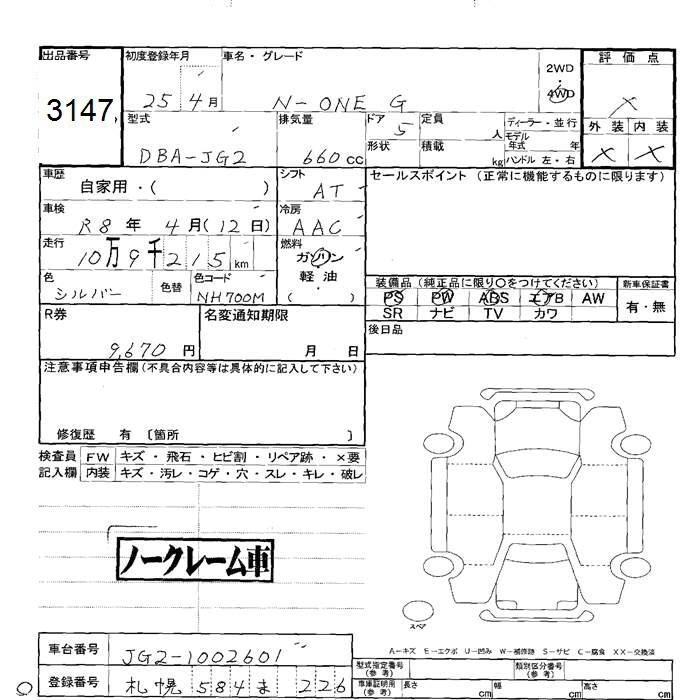 出品番号 初度登録年月 車名・グレード 2WD 評価点
3147 25 4月 N-ONE G 4WD ×
型式 排気量 ドア 5 定員 人 ディーラー・並行 外装 内装
DBA-JG2 660cc 形状 積載 kg モデル年式 年 × ×
ハンドル 左・右
車歴 シフト セールスポイント (正常に機能するものに限ります)
自家用・( ) AT
車検 冷房
R8年 4月(12日) AAC
走行 燃料
10万9千215km ガソリン
軽油
( )
色 シルバー 色替 色コード NH700M
装備品 (純正品に限り○をつけてください) 新車保証書
PS PW ABS エアB AW 有・無
SR ナビ TV カワ
R券 名変通知期限 後日品
9,670円 月 日
注意事項申告欄(不具合内容等は具体的に記入して下さい)
修復歴 有 〔箇所 〕
検査員 FW キズ・飛石・ヒビ割・リペア跡・×要
記入欄 内装 キズ・汚レ・コゲ・穴・スレ・キレ・破レ
ノークレーム車
スペア
A-キズ E-エクボ U-凹み W-補修跡 S-サビ C-腐食 XX-交換済
車台番号 JG2-1002601 型式指定番号 (参考) 類別区分番号 (参考)
登録番号 札幌 584 ま 226 車庫証明用 (参考) 長さ cm 幅 cm 高さ cm